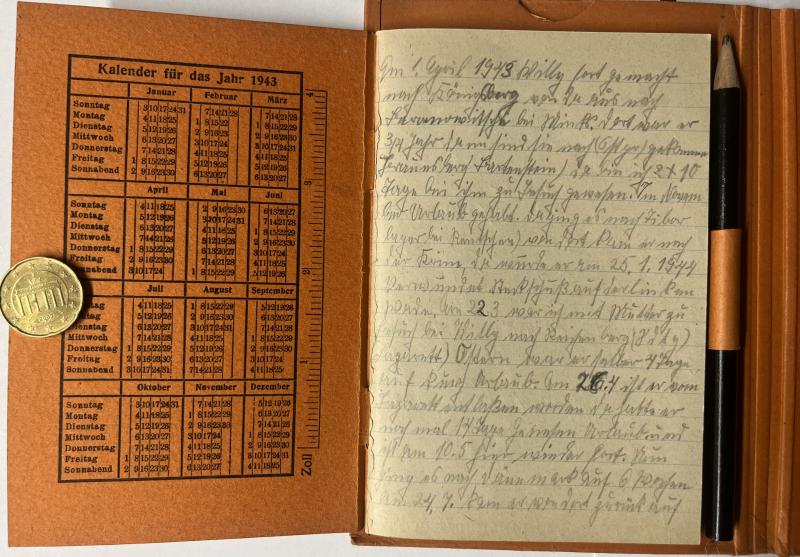 Kalender für das Jahr 1943
Januar Februar März
Sonntag 3 10 17 24 31 7 14 21 28 7 14 21 28
Montag 4 11 18 25 1 8 15 22 1 8 15 22 29
Dienstag 5 12 19 26 2 9 16 23 2 9 16 23 30
Mittwoch 6 13 20 27 3 10 17 24 3 10 17 24 31
Donnerstag 7 14 21 28 4 11 18 25 4 11 18 25
Freitag 1 8 15 22 29 5 12 19 26 5 12 19 26
Sonnabend 2 9 16 23 30 6 13 20 27 6 13 20 27
April Mai Juni
Sonntag 4 11 18 25 2 9 16 23 30 6 13 20 27
Montag 5 12 19 26 3 10 17 24 31 7 14 21 28
Dienstag 6 13 20 27 4 11 18 25 1 8 15 22 29
Mittwoch 7 14 21 28 5 12 19 26 2 9 16 23 30
Donnerstag 1 8 15 22 29 6 13 20 27 3 10 17 24
Freitag 2 9 16 23 30 7 14 21 28 4 11 18 25
Sonnabend 3 10 17 24 1 8 15 22 29 5 12 19 26
Juli August September
4 11 18 25 1 8 15 22 29 5 12 19 26
5 12 19 26 2 9 16 23 30 6 13 20 27
Dienstag 6 13 20 27 3 10 17 24 31 7 14 21 28
Mittwoch 7 14 21 28 4 11 18 25 1 8 15 22 29
Donnerstag 1 8 15 22 29 5 12 19 26 2 9 16 23 30
Freitag 2 9 16 23 30 6 13 20 27 3 10 17 24
Sonnabend 3 10 17 24 31 7 14 21 28 4 11 18 25
Oktober November Dezember
Sonntag 3 10 17 24 31 7 14 21 28 5 12 19 26
Montag 4 11 18 25 1 8 15 22 29 6 13 20 27
Dienstag 5 12 19 26 2 9 16 23 30 7 14 21 28
Mittwoch 6 13 20 27 3 10 17 24 1 8 15 22 29
Donnerstag 7 14 21 28 4 11 18 25 2 9 16 23 30
Freitag 1 8 15 22 29 5 12 19 26 3 10 17 24 31
Sonnabend 2 9 16 23 30 6 13 20 27 4 11 18 25
Zoll 1 2 3 4
Am 1. April 1943 Willy fort gemacht
nach Königsberg von da aus nach
Baranowitsche bei Minks. dort war er
3/4 Jahr dann sind sie nach (Ostpr) gekommen
Braunsberg Bartenstein) da bin ich 2 x 10
Tage bei ihm zu Besuch gewesen. Im Novem
ber Urlaub gehabt. da ging es nach Tibor
lager bei Rentschen) von dort kam er nach
der Krim, da wurde er am 25.1.1944
Verwundet Steckschuß auf der linken
Wade. Am 22.3 war ich mit Mutter zu
besuch bei Willy nach
Lazarett) Ostern war er selber 4 Tage
auf kurz Urlaub. Am 26.4 ist er vom
Lazarett entlaßen worden da hatte er
noch mal 14 tage Urlaub und
ist am 10.5 hier wieder fort. Nun
ging es nach dänemark auf 6 Wochen
Am 24.7. kam er von dort zurück auf